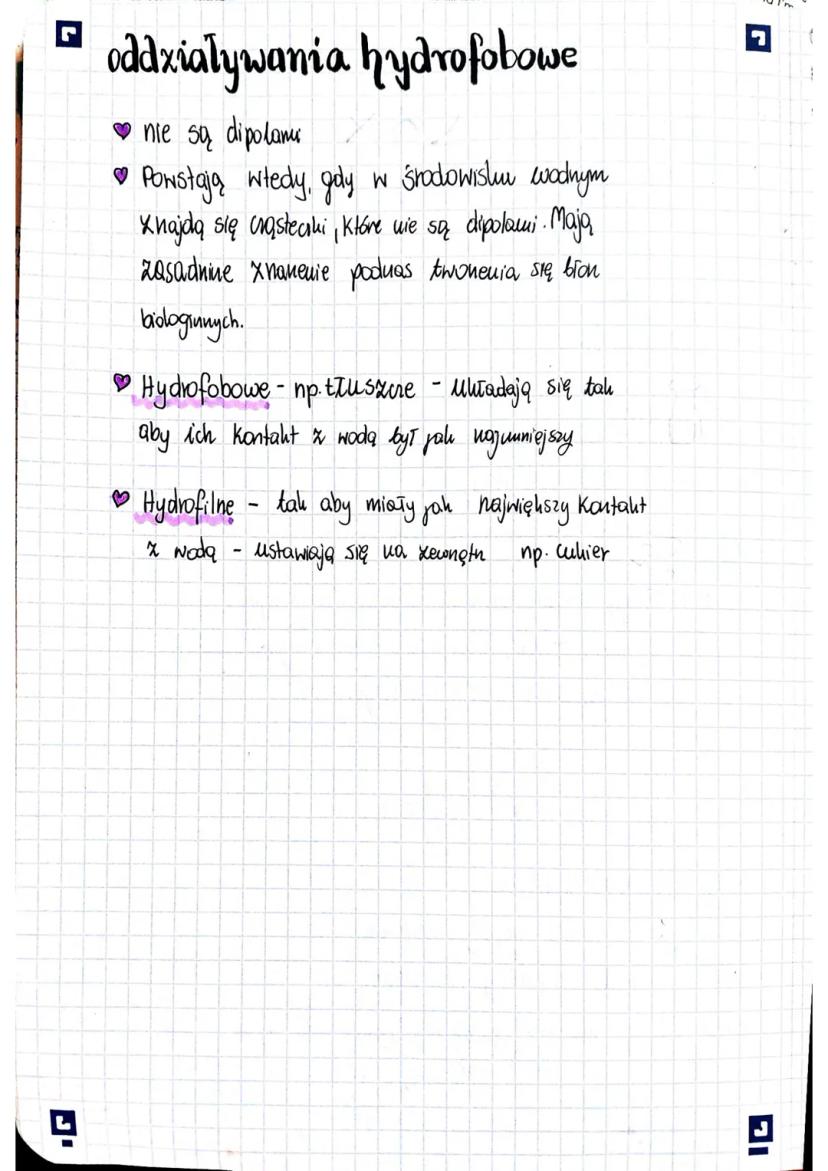 oddziaływania hydrofobowe
nie są dipolami
Powstają wtedy, gdy w środowisku wodnym
znajdą się cząsteczki, które nie są dipolami. Mają
zasadnicze znaczenie podczas tworzenia się błon
biologicznych.
Hydrofobowe - np. tłuszcze - układają się tak
aby ich kontakt z wodą był jak najmniejszy
Hydrofilne - tak aby miały jak największy kontakt
z wodą - ustawiają się na zewnątrz np. cukier